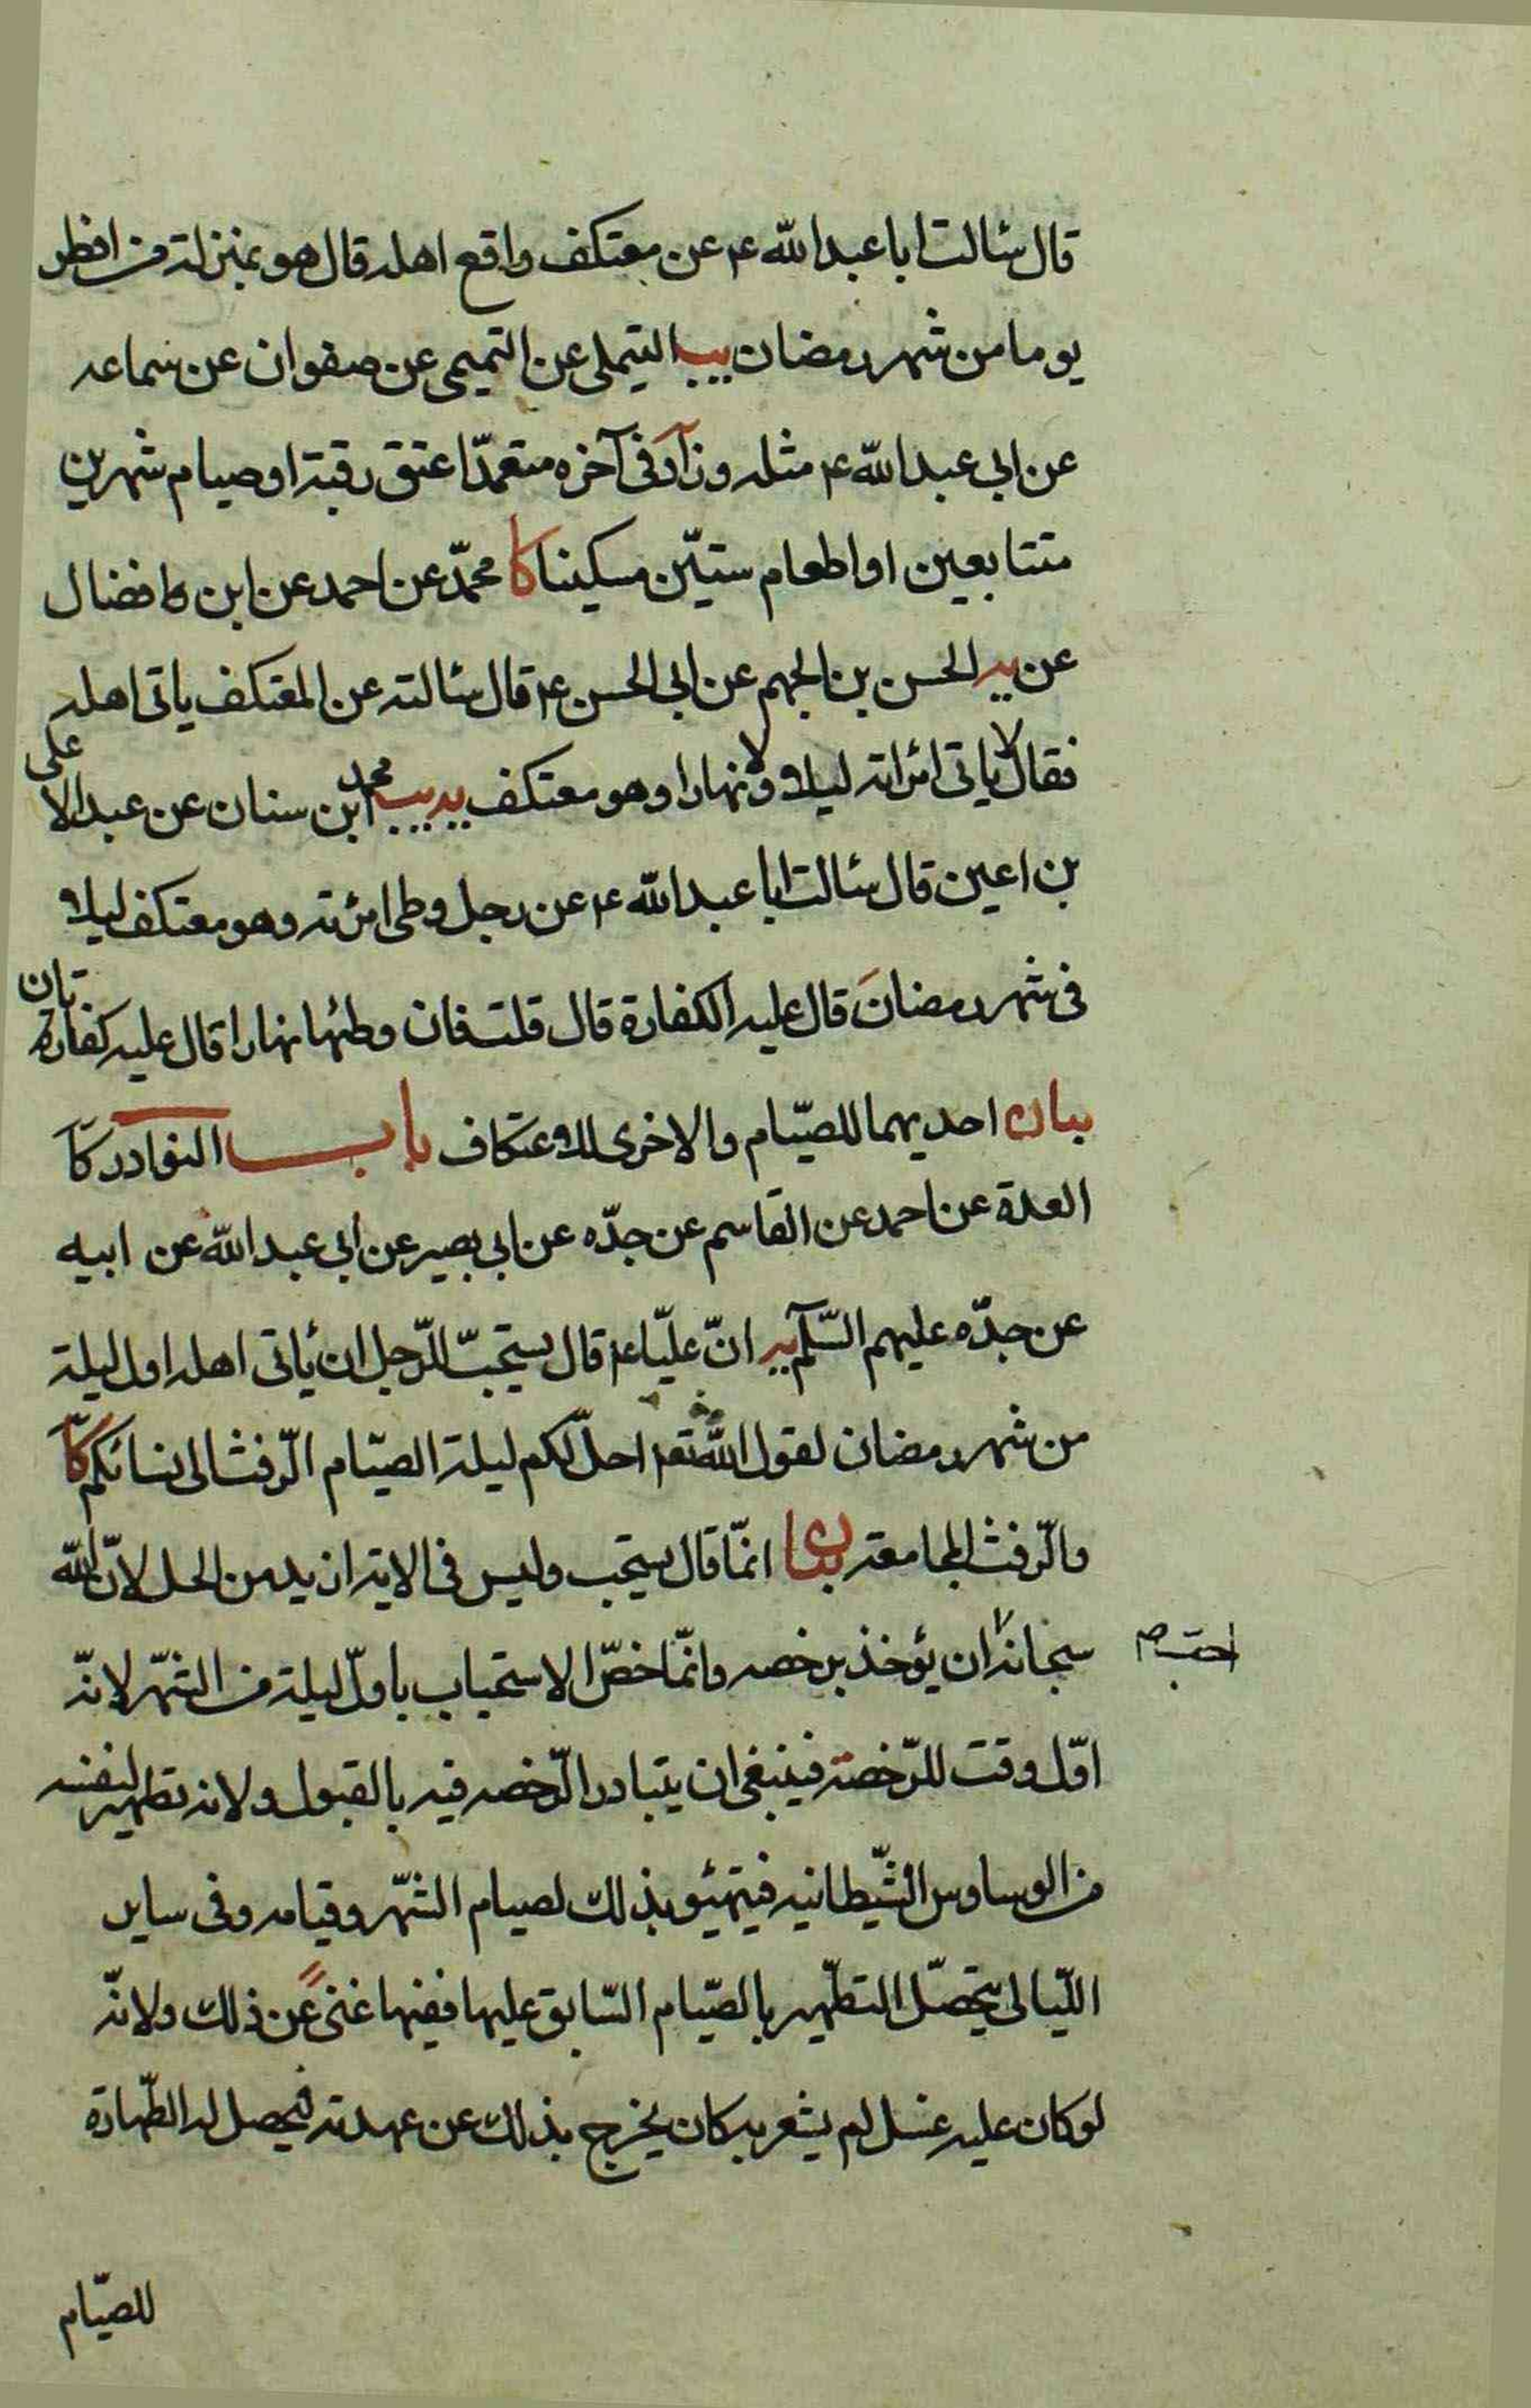 قال سئالت ابا عبدالله ع عن معتكف واقع اهله قال هو بمنزلة من افطر
يوما من شهر رمضان يب التيملى عن التميمى عن صفوان عن سماعه
عن ابى عبدالله ع مثله وزاد فى آخره متعمّدا عتق رقبة او صيام شهرين
متتابعين او اطعام ستّين مسكينا كا محمّد عن احمد عن ابن فضال
عن يه الحسن بن الجهم عن ابى الحسن ع قال سئالته عن المعتكف ياتى اهله
فقال لا ياتى امراته ليلا ولا نهارا وهو معتكف يه يب محمد ابن سنان عن عبد الاعلى
بن اعين قال سئالت ابا عبدالله ع عن رجل وطى امرئته وهو معتكف ليلا
فى شهر رمضان قال عليه الكفارة قال قلت فان وطئها نهارا قال عليه كفارتان
بيان احديهما للصّيام والاخرى للاعتكاف باب النوادر كا
العدة عن احمد عن القاسم عن جدّه عن ابى بصير عن ابى عبدالله عن ابيه
عن جدّه عليهم السّلم يه انّ عليّا ع قال يستحبّ للرّجل ان يأتى اهله اول ليلة
من شهر رمضان لقول الله تع احلّ لكم ليلة الصّيام الرّفث الى نسائكم كا
والرّفث المجامعة بيان انمّا قال يستحب وليس فى الاية ازيد من الحل لانّ الله
سبحانه ان يؤخذ برخصه وانمّا خصّ الاستحباب باولّ ليلة من الشّهر لانّه
احب
اوّل وقت للرّخصة فينبغى ان يتبادر الرّخصه فيه بالقبول ولانه تطهير لنفسه
من الوساوس الشّيطانيه فيتهيئو بذلك لصيام الشّهر وقيامه وفى ساير
اللّيالى يتحصّل التطّهير بالصّيام السّابق عليها ففيها غنى عن ذلك ولانّه
لو كان عليه غسل لم يشعر به كان يخرج بذلك عن عهدته فيحصل له الطّهارة
للصّيام